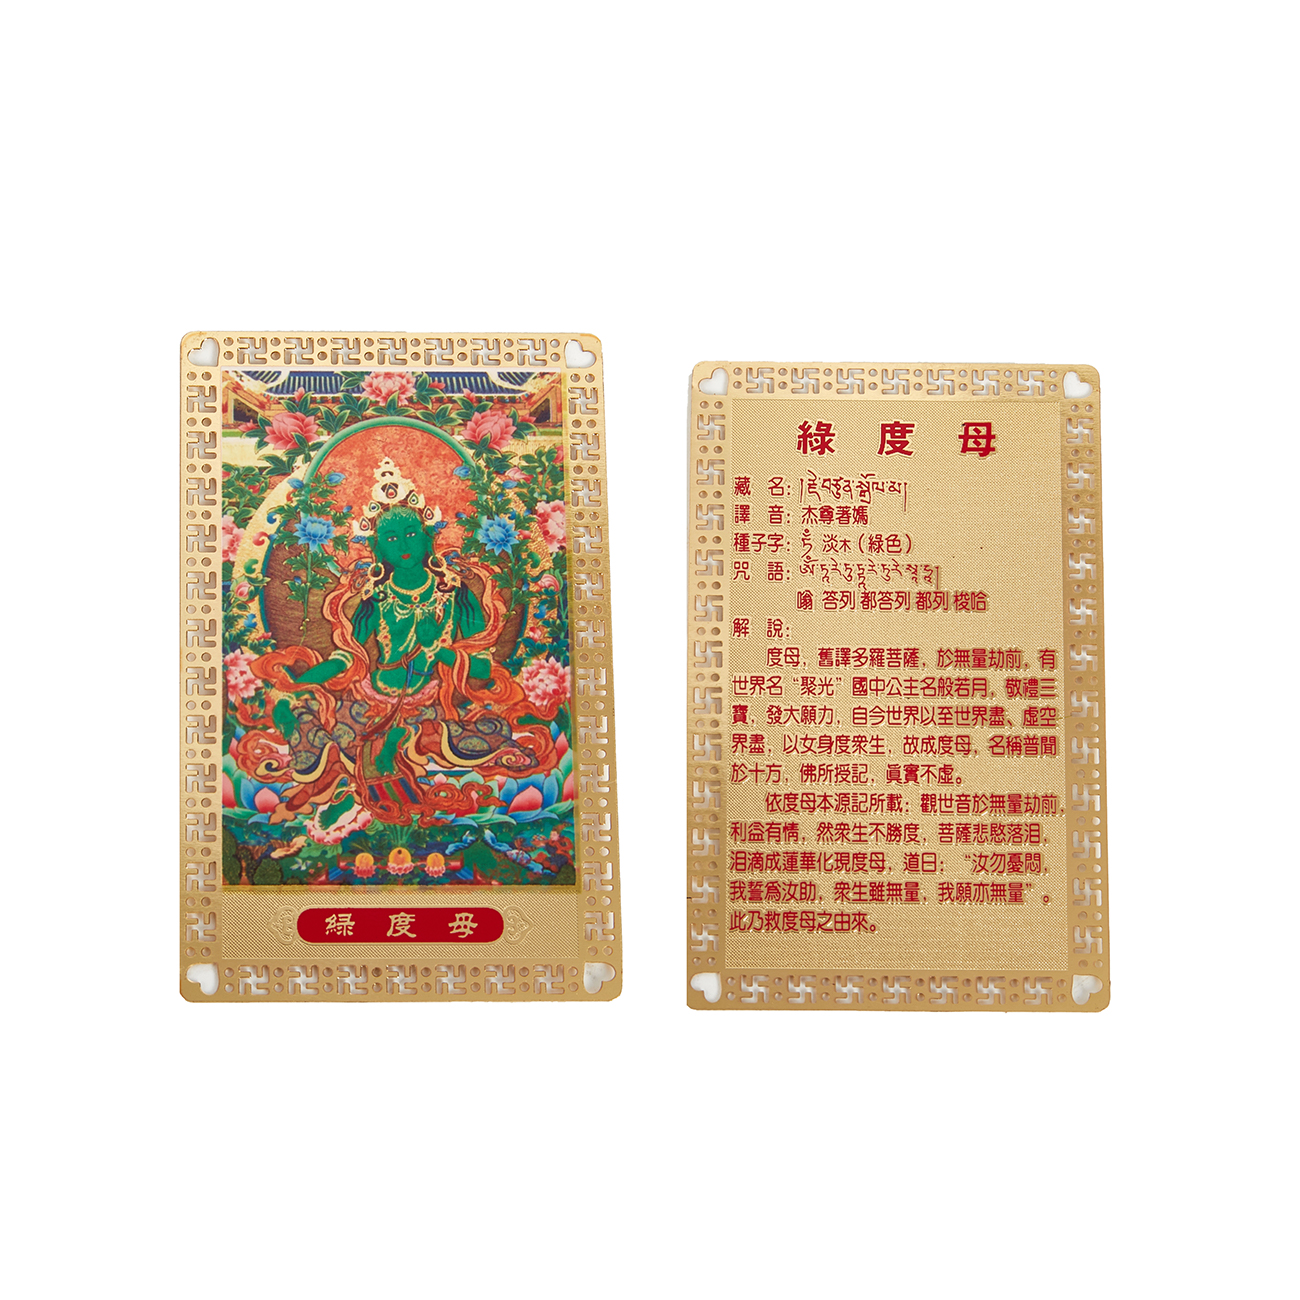 綠度母
綠度母
藏 名：
譯 音：杰尊著嫣
種子字： 淡木（綠色）
咒 語：
嗡 答列 都答列 都列 梭哈
解 說：
度母，舊譯多羅菩薩，於無量劫前，有
世界名“聚光”國中公主名般若月，敬禮三
寶，發大願力，自今世界以至世界盡、虛空
界盡，以女身度衆生，故成度母，名稱普聞
於十方，佛所授記，眞實不虛。
依度母本源記所載：觀世音於無量劫前，
利益有情，然衆生不勝度，菩薩悲愍落淚，
淚滴成蓮華化現度母，道曰：“汝勿憂悶，
我誓爲汝助，衆生雖無量，我願亦無量”。
此乃救度母之由來。